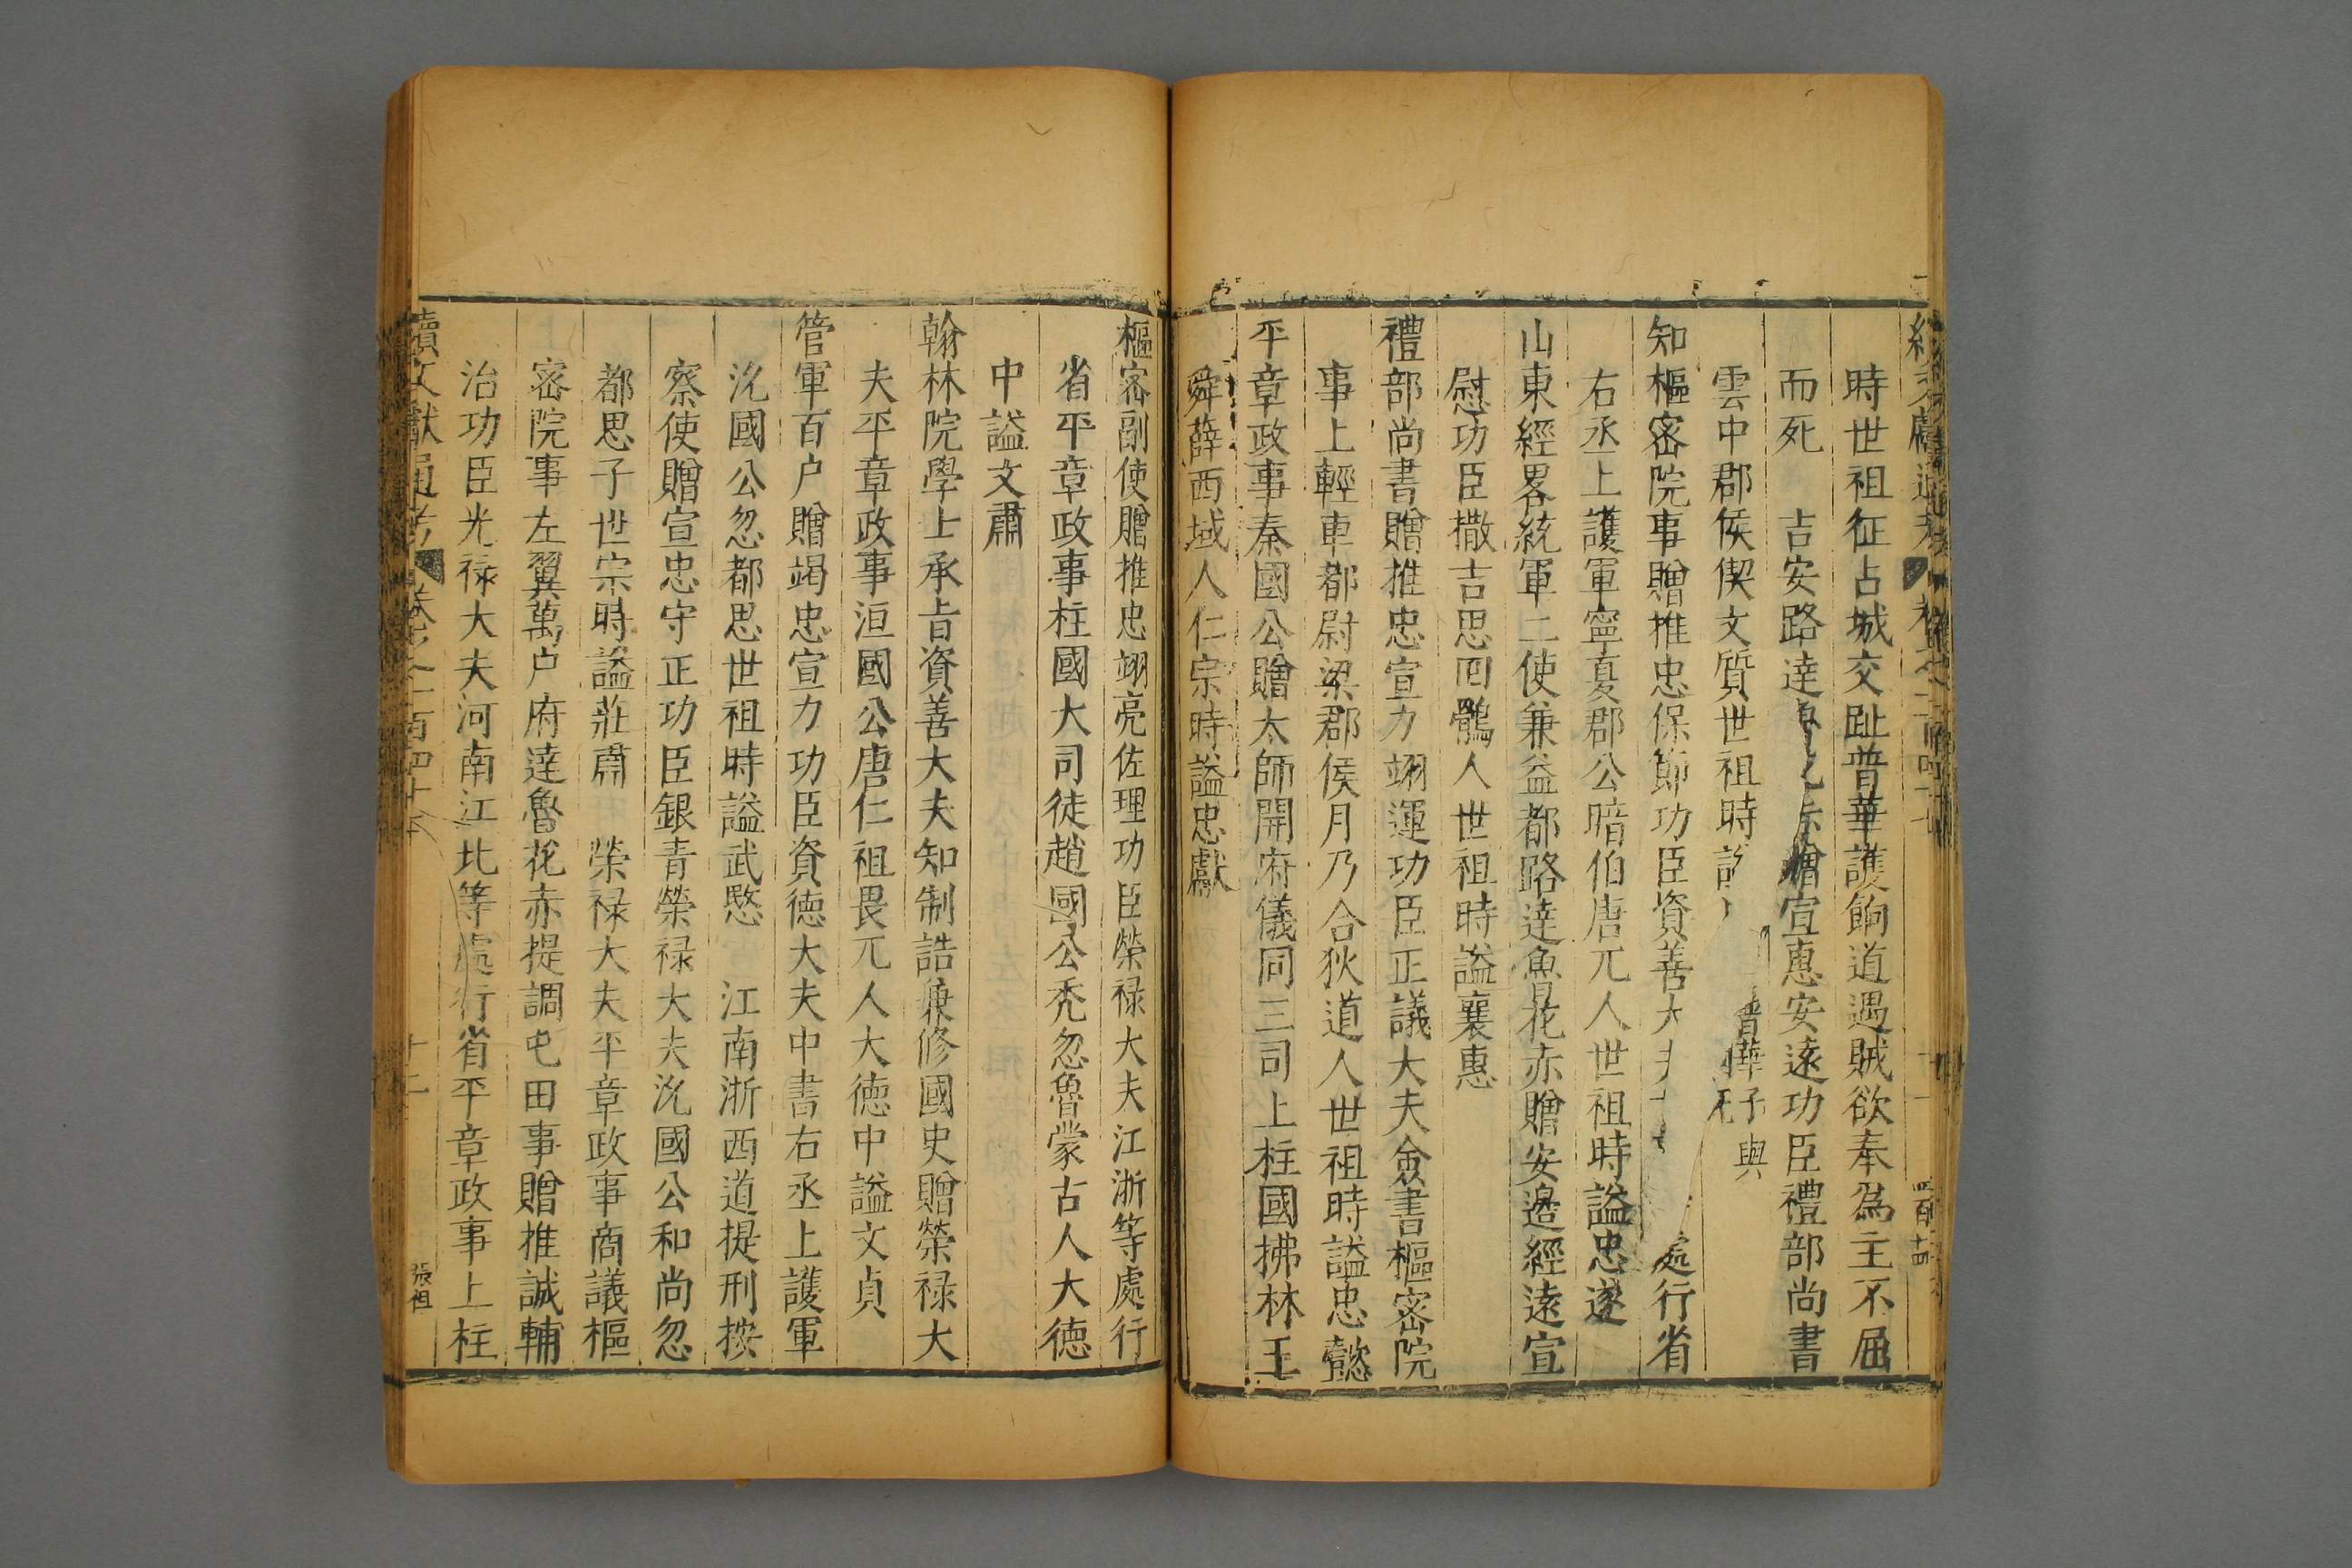 時世祖征占城交趾普華護餉道遇賊欲奉為主不屈
而死 吉安路達 贈宣惠安遠功臣禮部尚書
雲中郡侯偰文質世祖時 與
知樞密院事贈推忠保節功臣資善大夫 處行省
右丞上護軍寧夏郡公暗伯唐兀人世祖時謚忠遂
山東經畧統軍二使兼益都路達魯花赤贈安邊經遠宣
慰功臣撒吉思回鶻人世祖時謚襄惠
禮部尚書贈推忠宣力翊運功臣正議大夫僉書樞密院
事上輕車都尉梁郡侯月乃合狄道人世祖時謚忠懿
平章政事秦國公贈太師開府儀同三司上柱國拂林王
舜薛西域人仁宗時謚忠獻
樞密副使贈推忠翊亮佐理功臣榮祿大夫江浙等處行
省平章政事柱國大司徒趙國公禿忽魯蒙古人大德
中謚文肅
翰林院學士承旨資善大夫知制誥兼修國史贈榮祿大
夫平章政事洹國公唐仁祖畏兀人大德中謚文貞
管軍百户贈竭忠宣力功臣資德大夫中書右丞上護軍
沇國公忽都思世祖時謚武愍 江南浙西道提刑按
察使贈宣忠守正功臣銀青榮祿大夫沇國公和尚忽
都思子世宗時謚莊肅 榮祿大夫平章政事商議樞
密院事左翼萬户府達魯花赤提調屯田事贈推誠輔
治功臣光祿大夫河南江北等處行省平章政事上柱
續文獻通考 卷之一百四十 十二 張祖